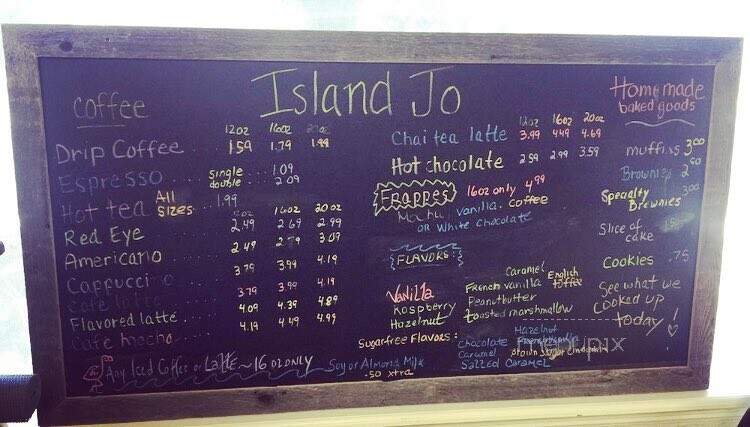 Island Jo
coffee
12oz 16oz 20oz
Drip Coffee 1.59 1.79 1.99
Espresso single 1.09
double 2.09
Hot tea All sizes 1.99
12oz 16oz 20oz
Red Eye 2.49 2.69 2.99
Americano 2.49 2.79 3.09
Cappuccino 3.79 3.99 4.19
Cafe latte 3.79 3.99 4.19
Flavored latte 4.09 4.39 4.89
Cafe mocha 4.19 4.49 4.99
Any Iced Coffee or Latte ~ 16 oz ONLY
12oz 16oz 20oz
Chai tea latte 3.99 4.49 4.69
Hot chocolate 2.59 2.99 3.59
Frappes 16oz only 4.99
Mocha, vanilla, coffee
OR White Chocolate
FLAVORS:
Vanilla
Raspberry
Hazelnut
Caramel
French vanilla
Peanutbutter
toasted marshmallow
English toffee
Sugarfree Flavors:
Hazelnut
Chocolate
Caramel
Salted Caramel
Soy or Almond Milk
.50 xtra
Homemade
baked goods
muffins 3.00
Brownies 2.50
Specialty
Brownies 3.00
Slice of
cake
Cookies .75
See what we
Cooked up
today!